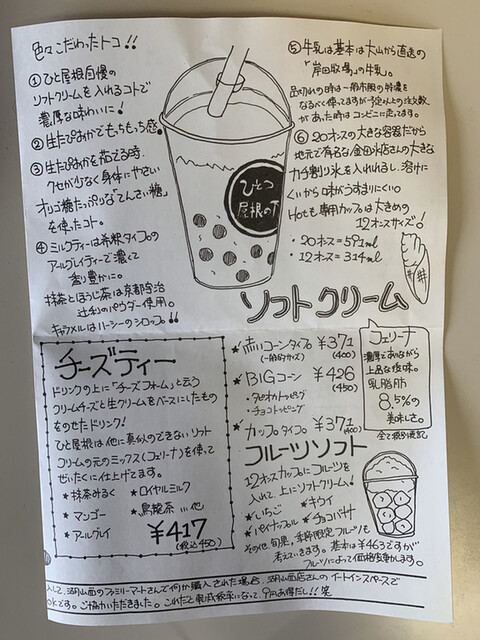 色々こだわったトコ!!
①ひと屋根自慢の
ソフトクリームを入れるコトで
濃厚な味わいに!
②生たぴおかでもちもち感。
③生たぴおかを茹でる時、
クセが少なく身体にやさしい
オリゴ糖たっぷりな「てんさい糖」
を使ったコト。
④ミルクティーは希釈タイプの
アールグレイティーで濃くて
香り豊かに。
抹茶とほうじ茶は京都宇治
辻利のパウダー使用。
キャラメルはハーシーのシロップ!!
ひとつ
屋根の下
⑤牛乳は基本は大山から直送の
「岸田牧場」の牛乳。
品切れの時は一般市販の特濃を
なるべく使ってますが…予定以上の注文数
があった時はコンビニに走ってます。
⑥20オンスの大きな容器だから
地元で有名な金田氷店さんの大きな
カチ割り氷を入れれるし、溶けに
くいから味がうすまりにくい○
Hotも専用カップは大きめの
12オンスサイズ!
・20オンス=591ml
・12オンス=314ml
ソフトクリーム
★赤いコーンタイプ ¥371
(一般的サイズ) (400)
★BIGコーン ¥426
(450)
・タピオカトッピング
・チョコトッピング
★カップタイプ ¥371
(400)
フェリーナ
濃厚でありながら
上品な後味。
乳脂肪
8.5%の
美味しさ。
全て税別表記
チーズティー
ドリンクの上に「チーズフォーム」と云う
クリームチーズと生クリームをベースにしたもの
をのせたドリンク!
ひと屋根は他に真似のできないソフト
クリームの元のミックス(フェリーナ)を使って
ぜいたくに仕上げてます。
★抹茶みるく ★ロイヤルミルク
★マンゴー ★烏龍茶 …他
★アールグレイ
¥417
(税込450)
フルーツソフト
12オンスカップにフルーツを
入れて、上にソフトクリーム!
★いちご ★キウイ
★パイナップル ★チョコバナナ
その他、旬果、季節限定フルーツも
考えていきます。基本は¥463ですが
フルーツによって価格変動します。
入して、湖山西のファミリーマートさんで何か購入された場合、湖山西店さんのイートインスペースで
OKです。ご協力いただきました。これだと軽減税率になって、9円お得だし!!笑